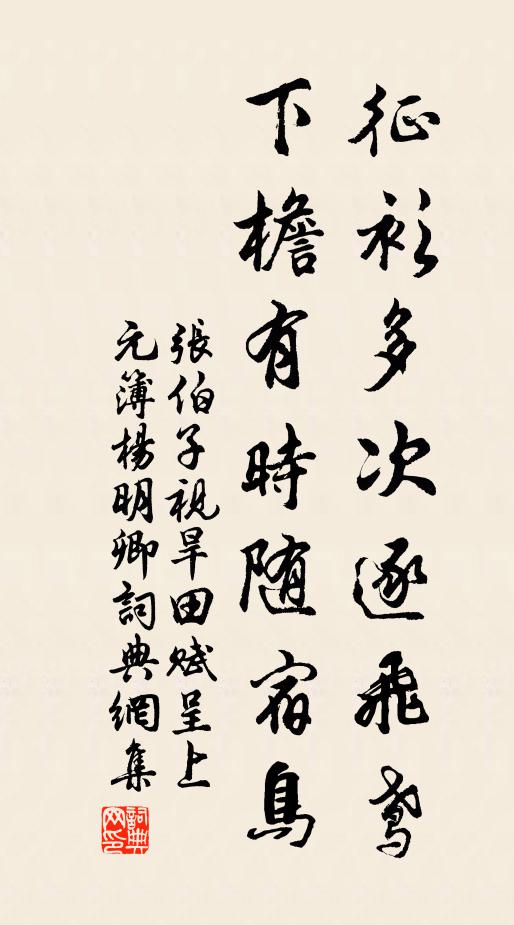 征衫多次逐飛鳶
下檐有時隨宿鳥
張伯子視旱田賦呈上
元簿楊明卿詞典網集
詞典
网印